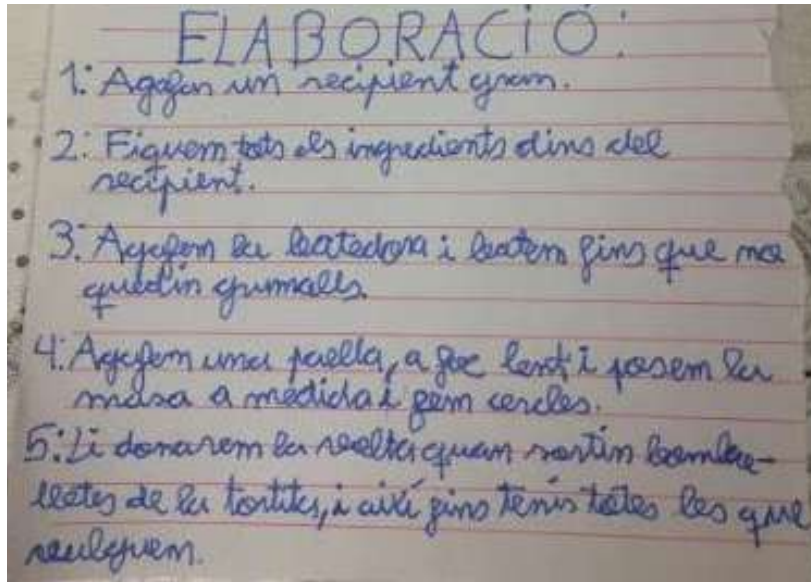 ELABORACIÓ:
1: Agafem un recipient gran.
2: Fiquem tots els ingredients dins del
recipient.
3: Agafem la batedora i batem fins que no
quedin grumalls.
4: Agafem una paella, a foc lent i posem la
masa a medida i fem cercles.
5: Li donarem la volta quan surtin bombo-
lletes de la tortita, i així fins tenir totes les que
vulguem.